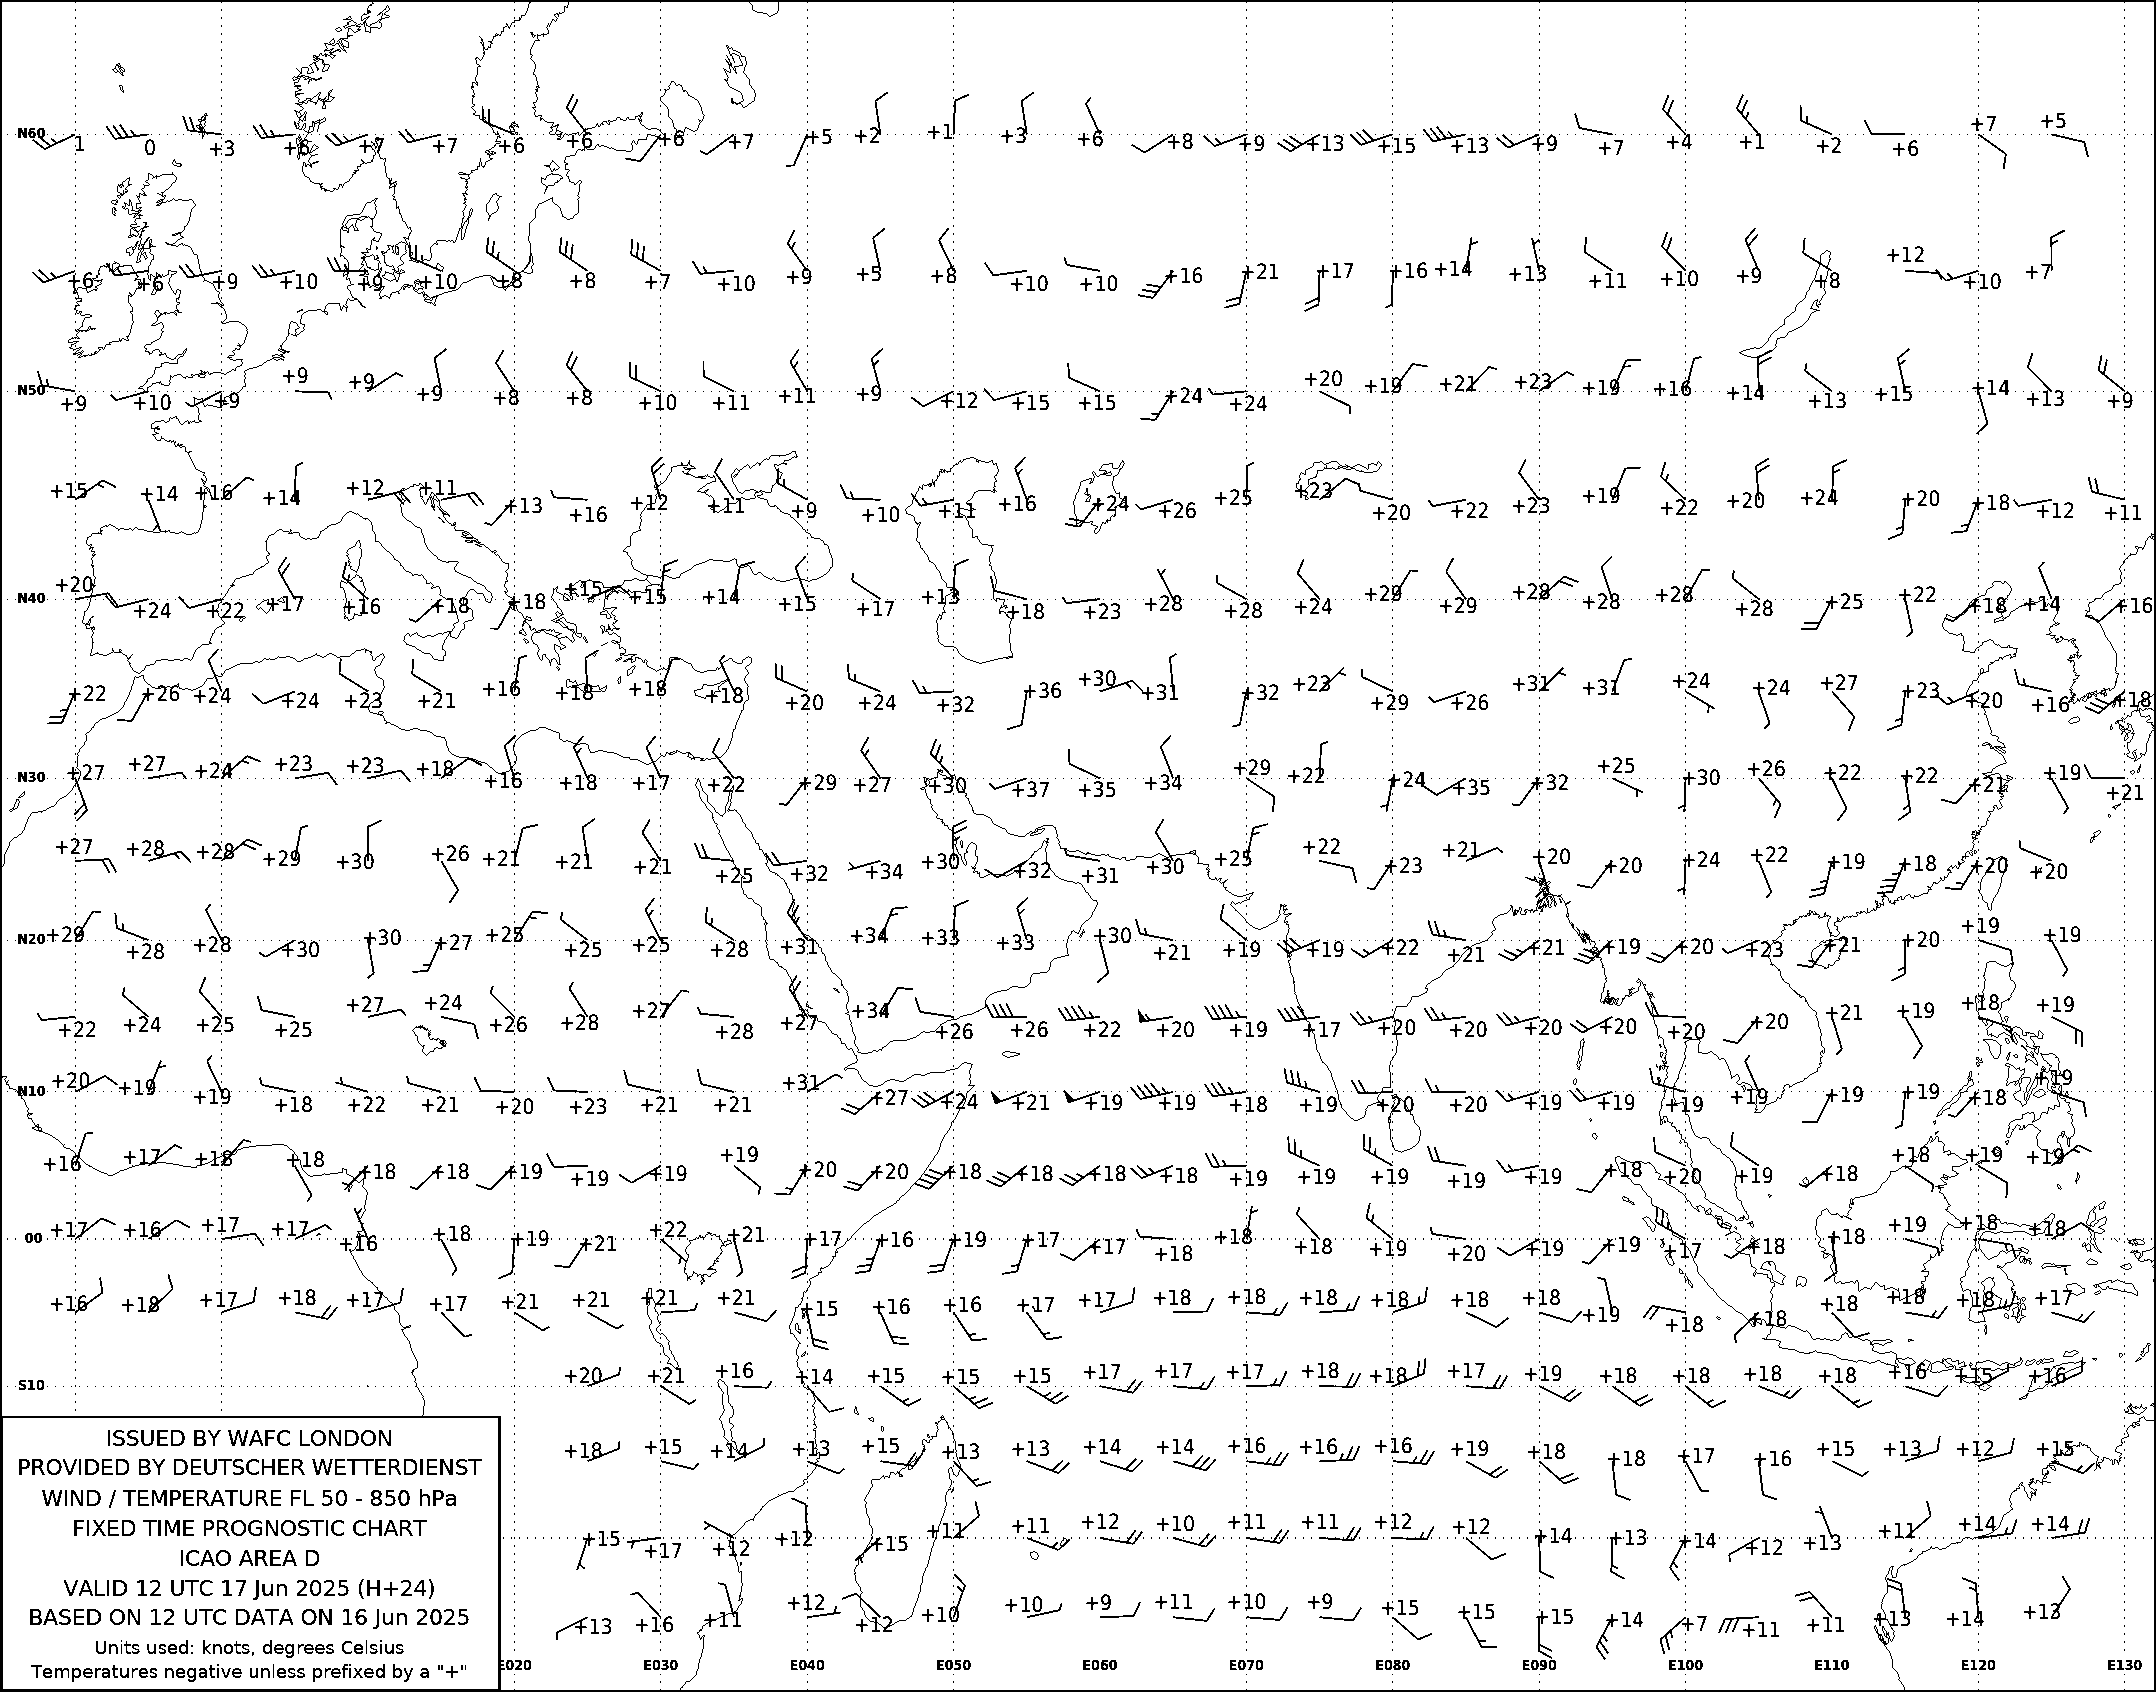 N60 1 0 +3 +6 +7 +7 +6 +6 +6 +7 +5 +2 +1 +3 +6 +8 +9 +13 +15 +13 +9 +7 +4 +1 +2 +6 +7 +5
+6 +6 +9 +10 +9 +10 +8 +8 +7 +10 +9 +5 +8 +10 +10 +16 +21 +17 +16 +14 +13 +11 +10 +9 +8 +12 +10 +7
N50 +9 +10 +9 +9 +9 +9 +8 +8 +10 +11 +11 +9 +12 +15 +15 +24 +24 +20 +19 +21 +23 +19 +16 +14 +13 +15 +14 +13 +9
+15 +14 +16 +14 +12 +11 +13 +16 +12 +11 +9 +10 +11 +16 +24 +26 +25 +23 +20 +22 +23 +19 +22 +20 +24 +20 +18 +12 +11
N40 +20 +24 +22 +17 +16 +18 +18 +15 +15 +14 +15 +17 +13 +18 +23 +28 +28 +24 +29 +29 +28 +28 +28 +28 +25 +22 +18 +14 +16
+22 +26 +24 +24 +23 +21 +16 +18 +18 +18 +20 +24 +32 +36 +30 +31 +32 +23 +29 +26 +31 +31 +24 +24 +27 +23 +20 +16 +18
N30 +27 +27 +24 +23 +23 +18 +16 +18 +17 +22 +29 +27 +30 +37 +35 +34 +29 +22 +24 +35 +32 +25 +30 +26 +22 +22 +21 +19 +21
+27 +28 +28 +29 +30 +26 +21 +21 +21 +25 +32 +34 +30 +32 +31 +30 +25 +22 +23 +21 +20 +20 +24 +22 +19 +18 +20 +20
N20 +29 +28 +28 +30 +30 +27 +25 +25 +25 +28 +31 +34 +33 +33 +30 +21 +19 +19 +22 +21 +21 +19 +20 +23 +21 +20 +19 +19
+22 +24 +25 +25 +27 +24 +26 +28 +27 +28 +27 +34 +26 +26 +22 +20 +19 +17 +20 +20 +20 +20 +20 +20 +21 +19 +18 +19
N10 +20 +19 +19 +18 +22 +21 +20 +23 +21 +21 +31 +27 +24 +21 +19 +19 +18 +19 +20 +20 +19 +19 +19 +19 +19 +19 +18 +19
+16 +17 +18 +18 +18 +18 +19 +19 +19 +19 +20 +20 +18 +18 +18 +18 +19 +19 +19 +19 +19 +18 +20 +19 +18 +18 +19 +19
00 +17 +16 +17 +17 +16 +18 +19 +21 +22 +21 +17 +16 +19 +17 +17 +18 +18 +18 +19 +20 +19 +19 +17 +18 +18 +19 +18 +18
+16 +18 +17 +18 +17 +17 +21 +21 +21 +21 +15 +16 +16 +17 +17 +18 +18 +18 +18 +18 +18 +19 +18 +18 +18 +18 +18 +17
S10 +20 +21 +16 +14 +15 +15 +15 +17 +17 +17 +18 +18 +17 +19 +18 +18 +18 +18 +16 +15 +16
+18 +15 +14 +13 +15 +13 +13 +14 +14 +16 +16 +16 +19 +18 +18 +17 +16 +15 +13 +12 +15
+15 +17 +12 +12 +15 +11 +11 +12 +10 +11 +11 +12 +12 +14 +13 +14 +12 +13 +11 +14 +14
+13 +16 +11 +12 +12 +10 +10 +9 +11 +10 +9 +15 +15 +15 +14 +7 +11 +11 +13 +14 +13
E020 E030 E040 E050 E060 E070 E080 E090 E100 E110 E120 E130
ISSUED BY WAFC LONDON
PROVIDED BY DEUTSCHER WETTERDIENST
WIND / TEMPERATURE FL 50 - 850 hPa
FIXED TIME PROGNOSTIC CHART
ICAO AREA D
VALID 12 UTC 17 Jun 2025 (H+24)
BASED ON 12 UTC DATA ON 16 Jun 2025
Units used: knots, degrees Celsius
Temperatures negative unless prefixed by a "+"